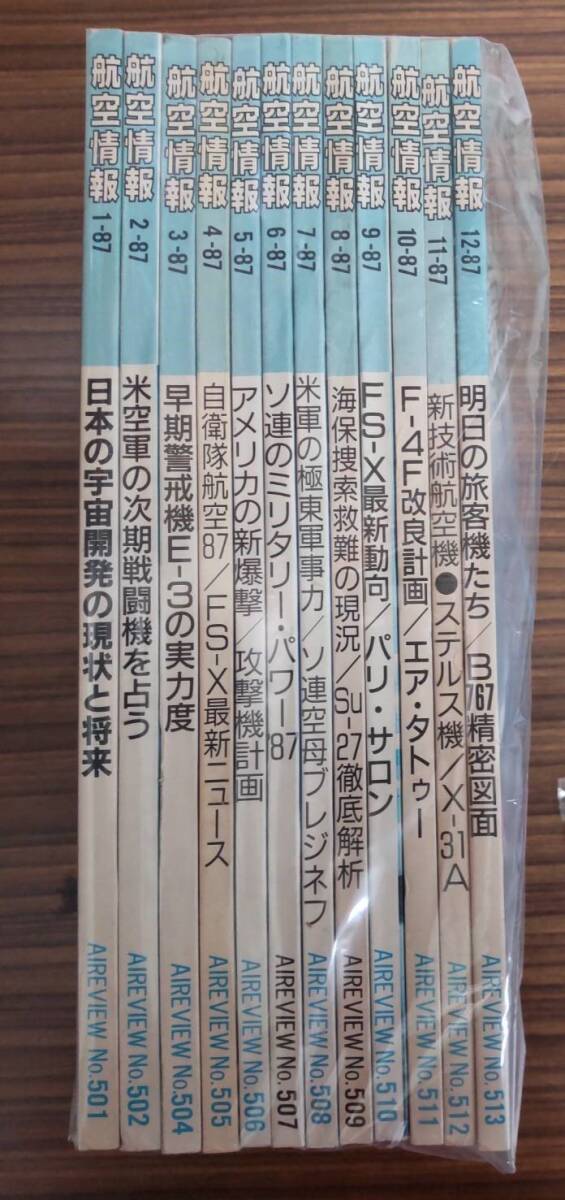 航空情報 1-87 日本の宇宙開発の現状と将来 AIREVIEW No.501
航空情報 2-87 米空軍の次期戦闘機を占う AIREVIEW No.502
航空情報 3-87 早期警戒機E-3の実力度 AIREVIEW No.504
航空情報 4-87 自衛隊航空87/FS-X最新ニュース AIREVIEW No.505
航空情報 5-87 アメリカの新爆撃/攻撃機計画 AIREVIEW No.506
航空情報 6-87 ソ連のミリタリー・パワー'87 AIREVIEW No.507
航空情報 7-87 米軍の極東軍事力/ソ連空母ブレジネフ AIREVIEW No.508
航空情報 8-87 海保捜索救難の現況/Su-27徹底解析 AIREVIEW No.509
航空情報 9-87 FS-X最新動向/パリ・サロン AIREVIEW No.510
航空情報 10-87 F-4F改良計画/エア・タトゥー AIREVIEW No.511
航空情報 11-87 新技術航空機●ステルス機/X-31A AIREVIEW No.512
航空情報 12-87 明日の旅客機たち/B767精密図面 AIREVIEW No.513